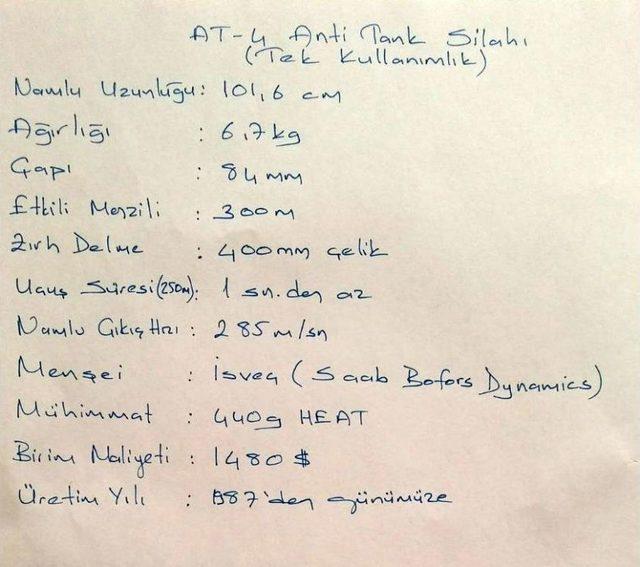 AT-4 Anti Tank Silahı
(Tek Kullanımlık)
Namlu Uzunluğu: 101,6 cm
Ağırlığı : 6,7 kg
Çapı : 84 mm
Etkili Menzili : 300m
Zırh Delme : 400mm çelik
Uçuş Süresi(250m): 1 sn.den az
Namlu Çıkış Hızı : 285 m/sn
Menşei : İsveç (Saab Bofors Dynamics)
Mühimmat : 440g HEAT
Birim Maliyeti : 1480 $
Üretim Yılı : 1987'den günümüze